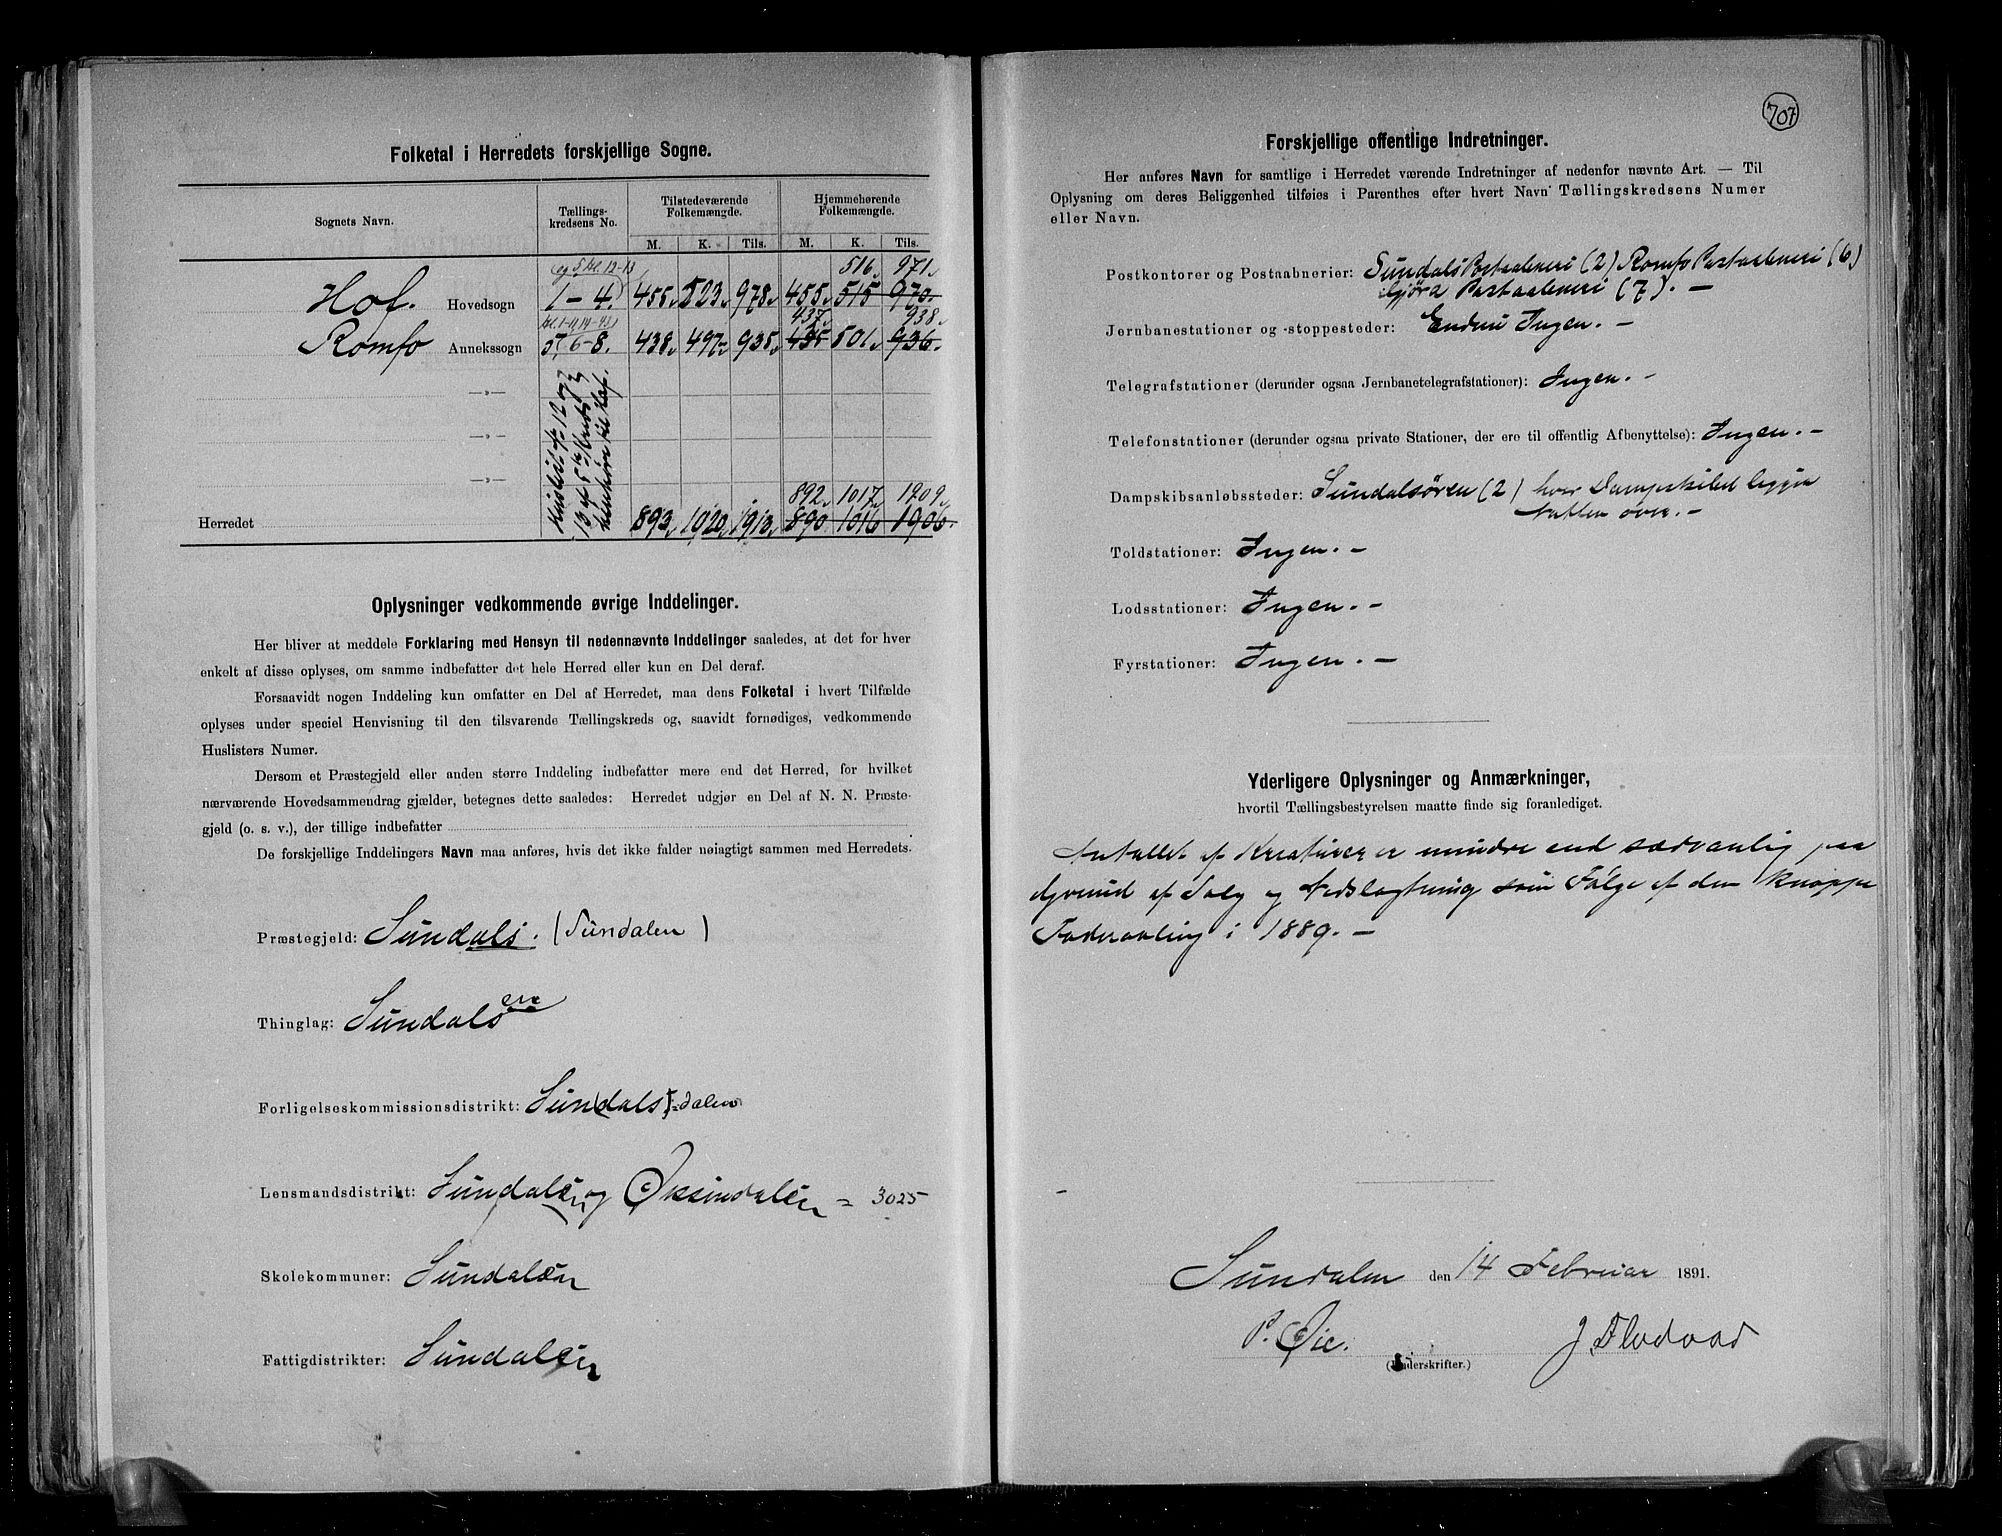 Folketal i Herredets forskjellige Sogne.
Sognets Navn. Tællings-kredsens No. Tilstedeværende Folkemængde. Hjemmehørende Folkemængde.
M. K. Tils. M. K. Tils.
(og 5 hl. 12-13) 516 971
Hof. Hovedsogn 1-4. 455 523 978 455 515 970
hl. 1-11, 14-43) 437 938
Romfo Annekssogn 5, 6-8. 438 497 935 435 501 936
—»—
—»—
—»—
Huslist № 12 og
13 af 5te Kreds
henhøre til Hof.
892 1017 1909
Herredet 893 1020 1913 890 1016 1906
Oplysninger vedkommende øvrige Inddelinger.
Her bliver at meddele Forklaring med Hensyn til nedennævnte Inddelinger saaledes, at det for hver
enkelt af disse oplyses, om samme indbefatter det hele Herred eller kun en Del deraf.
Forsaavidt nogen Inddeling kun omfatter en Del af Herredet, maa dens Folketal i hvert Tilfælde
oplyses under speciel Henvisning til den tilsvarende Tællingskreds og, saavidt fornødiges, vedkommende
Huslisters Numer.
Dersom et Præstegjeld eller anden større Inddeling indbefatter mere end det Herred, for hvilket
nærværende Hovedsammendrag gjælder, betegnes dette saaledes: Herredet udgjør en Del af N. N. Præste-
gjeld (o. s. v.), der tillige indbefatter
De forskjellige Inddelingers Navn maa anføres, hvis det ikke falder nøiagtigt sammen med Herredets.
Præstegjeld: Sundals. (Sundalen)
Thinglag: Sundals en
Forligelseskommissionsdistrikt: Sundals = dalen
Lensmandsdistrikt: Sundalen og Øksendalen = 3025
Skolekommuner: Sundalen
Fattigdistrikter: Sundalen
707
Forskjellige offentlige Indretninger.
Her anføres Navn for samtlige i Herredet værende Indretninger af nedenfor nævnte Art. — Til
Oplysning om deres Beliggenhed tilføies i Parenthes efter hvert Navn Tællingskredsens Numer
eller Navn.
Postkontorer og Postaabnerier: Sundals Postaabneri (2) Romfo Postaabneri (6)
Gjøra Postaabneri (7). —
Jernbanestationer og -stoppesteder: Endnu Ingen. —
Telegrafstationer (derunder ogsaa Jernbanetelegrafstationer): Ingen. —
Telefonstationer (derunder ogsaa private Stationer, der ere til offentlig Afbenyttelse): Ingen. —
Dampskibsanløbssteder: Sundalsøren (2) hvor Dampskibet ligger
Natten over. —
Toldstationer: Ingen. —
Lodsstationer: Ingen. —
Fyrstationer: Ingen. —
Yderligere Oplysninger og Anmærkninger,
hvortil Tællingsbestyrelsen maatte finde sig foranlediget.
Antallet af Kreaturer er mindre end sædvanlig paa
Grund af Salg og Nedslagtning som Følge af den knappe
Foderavling i 1889. —
Sundalen den 14 Februar 1891.
P. Øie. J Flodvad
(Underskrifter.)